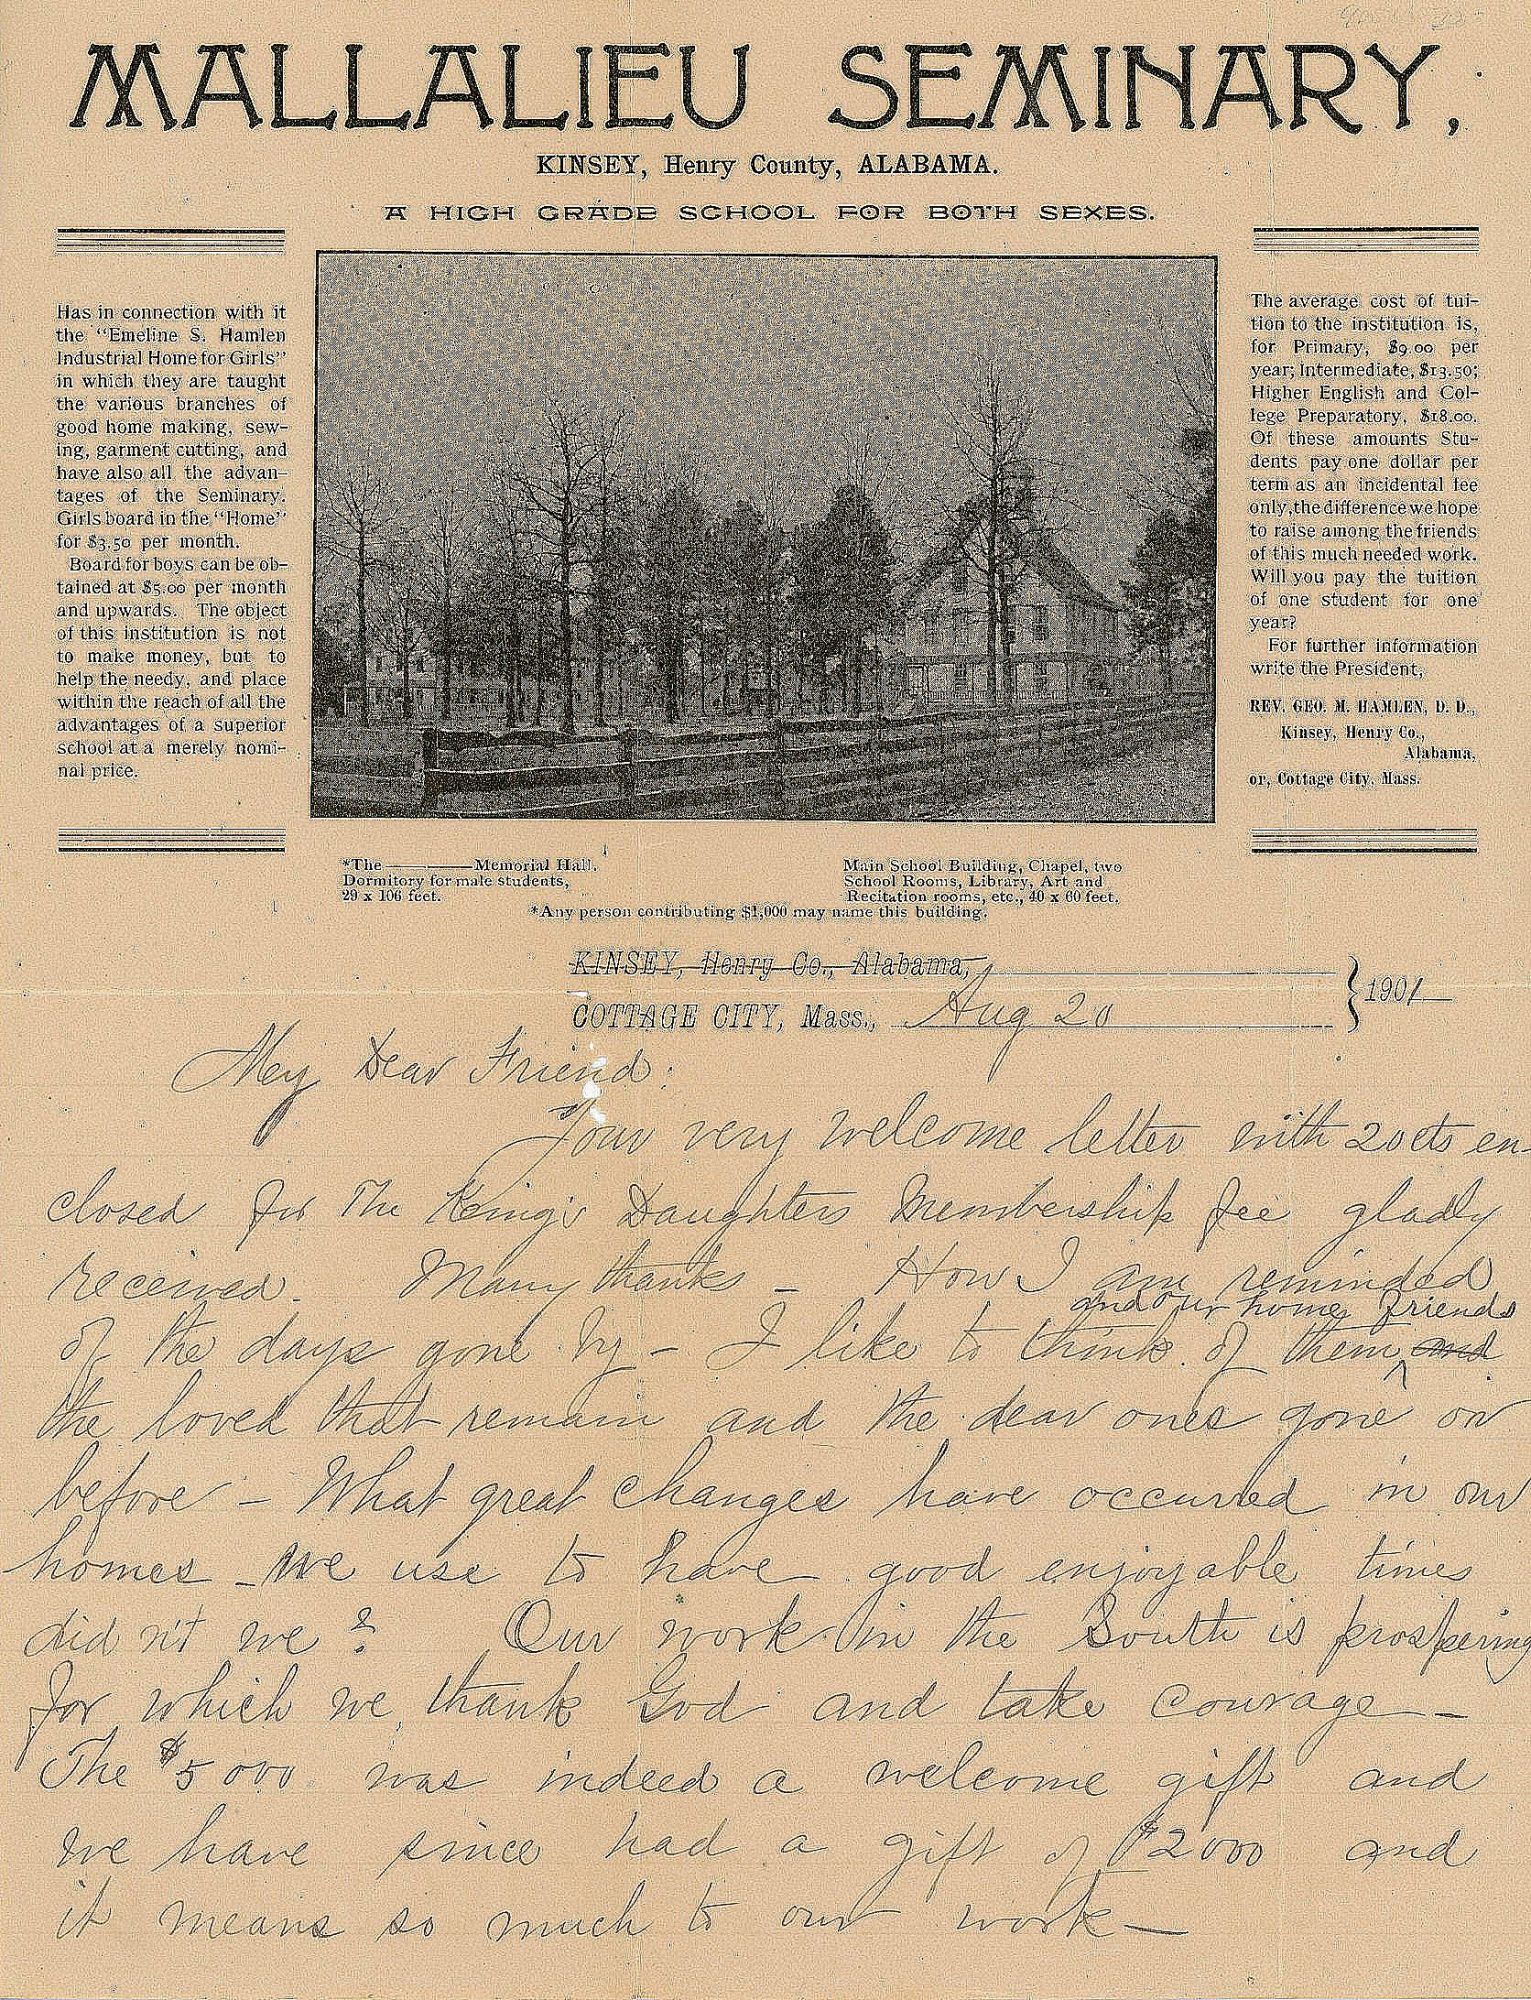 MALLALIEU SEMINARY,
KINSEY, Henry County, ALABAMA.
A HIGH GRADE SCHOOL FOR BOTH SEXES.
Has in connection with it
the "Emeline S. Hamlen
Industrial Home for Girls"
in which they are taught
the various branches of
good home making, sew-
ing, garment cutting, and
have also all the advan-
tages of the Seminary.
Girls board in the "Home"
for $3.50 per month.
Board for boys can be ob-
tained at $5.00 per month
and upwards. The object
of this institution is not
to make money, but to
help the needy, and place
within the reach of all the
advantages of a superior
school at a merely nomi-
nal price.
The average cost of tui-
tion to the institution is,
for Primary, $9.00 per
year; Intermediate, $13.50;
Higher English and Col-
lege Preparatory, $18.00.
Of these amounts Stu-
dents pay one dollar per
term as an incidental fee
only, the difference we hope
to raise among the friends
of this much needed work.
Will you pay the tuition
of one student for one
year?
For further information
write the President,
REV. GEO. M. HAMLEN, D. D.,
Kinsey, Henry Co.,
Alabama,
or, Cottage City, Mass.
*The ——— Memorial Hall.
Dormitory for male students,
29 x 106 feet.
Main School Building, Chapel, two
School Rooms, Library, Art and
Recitation rooms, etc., 40 x 60 feet.
*Any person contributing $1,000 may name this building.
KINSEY, Henry Co., Alabama,
COTTAGE CITY, Mass., Aug 20 1901
My Dear Friend:
Your very welcome letter with 20cts en-
closed for The King's Daughters Membership fee gladly
received. Many thanks – How I am reminded
and our home friends
of the days gone by – I like to think of them and
the loved that remain and the dear ones gone on
before – What great changes have occurred in our
homes – We use to have good enjoyable times
did n't we? Our work in the South is prospering
for which we thank God and take courage –
The $5000 was indeed a welcome gift and
we have since had a gift of $2000 and
it means so much to our work –